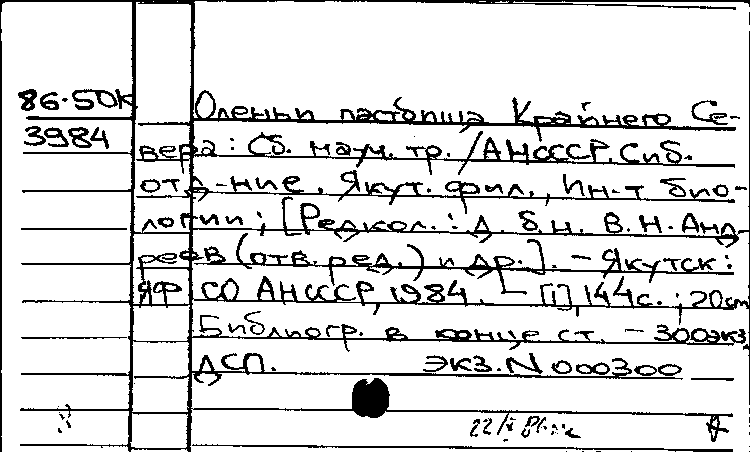 86-50К
3984
Оленьи пастбища Крайнего Се-
вера: Сб. науч. тр. /АНСССР. Сиб.
отд-ние. Якут. фил., Ин-т био-
логии; [Редкол.: д. б.н. В.Н.Анд-
реев (отв. ред.) и др.]. - Якутск:
ЯФ СО АНСССР, 1984. - [1], 144с.; 20см
Библиогр. в конце ст. - 300экз.
ДСП. ЭКЗ. N 000300